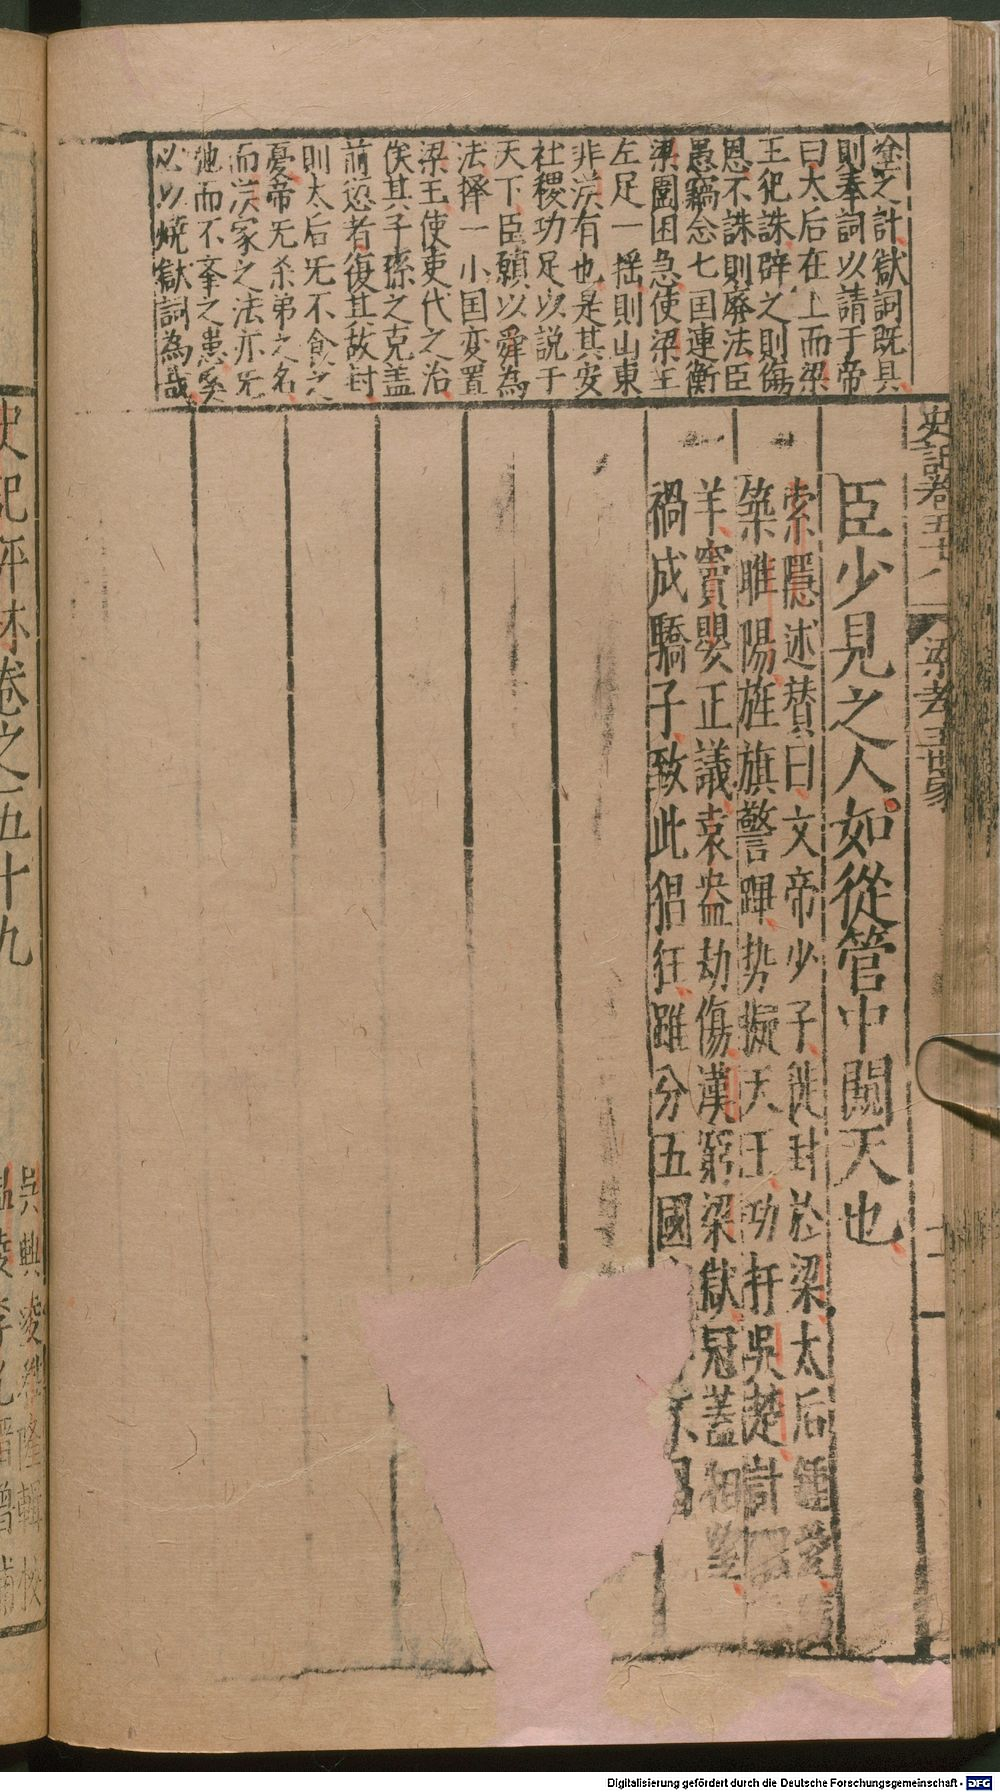 史記卷五十八
梁孝王世家
十一
念之計獄詞既具
則奉詞以請于帝
曰太后在上而梁
王犯誅辟之則傷
恩不誅則廢法臣
愚竊念七囯連衡
梁圍困急使梁王
左足一揺則山東
非漢有也是其安
社稷功足以説于
天下臣願以舜為
法擇一小囯変置
梁王使吏代之治
俟其子孫之克盖
前愆者復其故封
則太后旡不食之
憂帝旡杀弟之名
而漢家之法亦旡
弛而不挙之患奚
必以燒獄詞為哉
臣少見之人如從管中闚天也
索隱述賛曰文帝少子徙封於梁太后鍾愛
築睢陽旌旗警蹕势擬天王功扞吳楚計
羊竇嬰正議袁盎劫傷漢窮梁獄冠蓋相望
禍成驕子致此猖狂雖分五國 不昌
史記評林卷之五十九
吳興凌稚隆輯校
溫陵李光縉增補
Digitalisierung gefördert durch die Deutsche Forschungsgemeinschaft - DFG